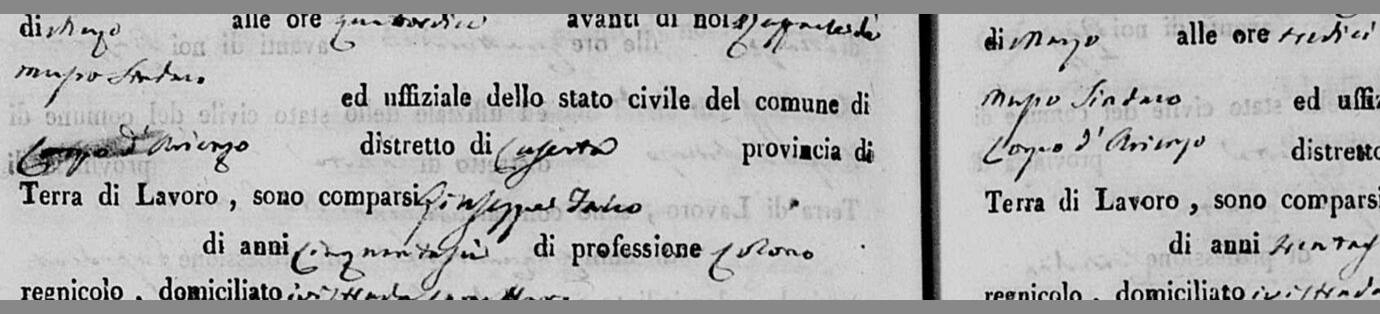 di Marzo alle ore quattordici avanti di noi
Mupo Sindaco
ed uffiziale dello stato civile del comune di
d'Arienzo distretto di Caserta provincia di
Terra di Lavoro , sono comparsi Giuseppe
di anni cinquantasei di professione colono
regnicolo , domiciliato
di Marzo alle ore tredici
Mupo Sindaco ed uffiz
d'Arienzo distretto
Terra di Lavoro , sono comparsi
di anni
regnicolo , domiciliato